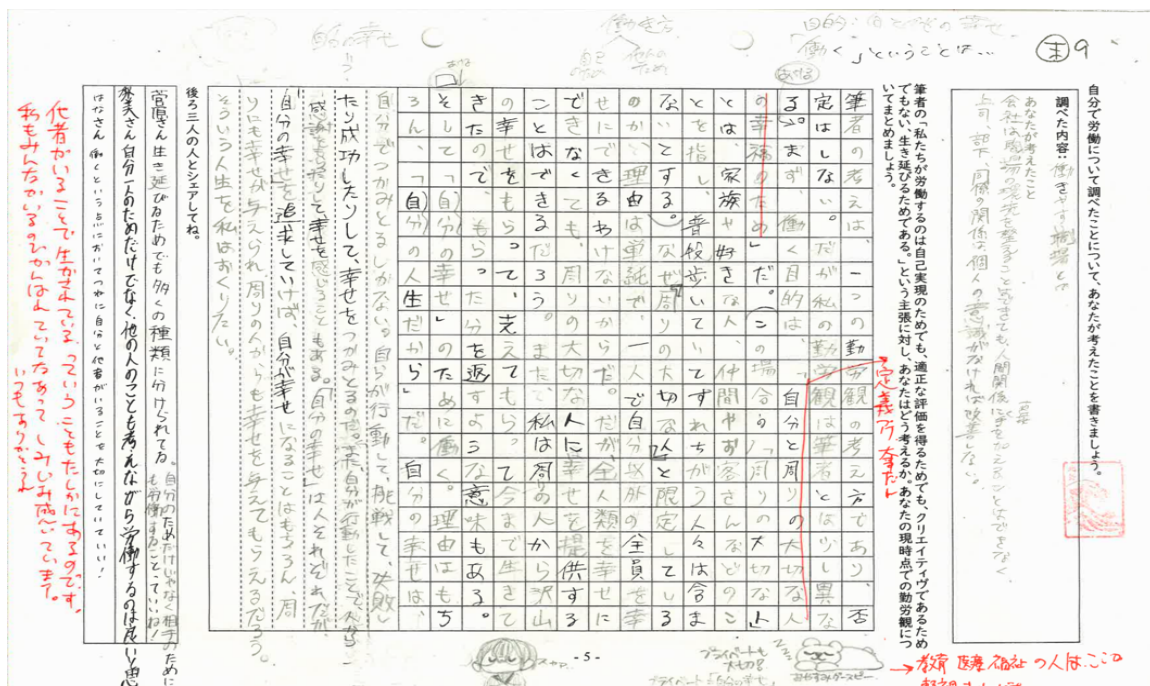 目的:自と他の幸せ
「働く」ということは…
働き方
自己のため
他人のため
自他の幸せ
末9
自分で労働について調べたことについて、あなたが考えたことを書きましょう。
調べた内容:働きやすい職場とは
あなたが考えたこと
会社は職場の環境を整えることはできても、人間関係に手を加えることはできなく、
上司、部下、同僚の関係は個人の意識がなければ改善しない。
筆者の「私たちが労働するのは自己実現のためでも、適正な評価を得るためでも、クリエイティヴであるため
でもない、生き延びるためである。」という主張に対し、あなたはどう考えるか。あなたの現時点での勤労観につ
いてまとめましょう。
筆者の考えは、一つの勤労観の考え方であり、否
定はしない。だが私の勤労観は筆者とは少し異な
る。まず、働く目的は、「自分と周りの大切な人
の幸福のため」だ。(この場合の「周りの大切な人」
とは、家族や好きな人、仲間やお客さんなどのこ
とを指し、普段歩いていてすれちがう人々は含ま
ないとする。)なぜ『周りの大切な人』と限定している
のか、理由は単純で、一人で自分以外の全員を幸
せにできるわけないからだ。だが、全人類を幸せに
できなくても、周りの大切な人に幸せを提供する
ことはできるだろう。また、私は周りの人から沢山
の幸せをもらって、支えてもらって今まで生きて
きたので、もらった分を返すような意味もある。
そして「自分の幸せ」のために働く。理由はもち
ろん、「自分の人生だから」だ。自分の幸せは、
自分でつかみとるしかない。自らが行動して、挑戦して、失敗し
たり成功したりして、幸せをつかみとるのだ。また、自分が行動したことで、人から
感謝されたりして幸せを感じることもある。「自分の幸せ」は人それぞれだが、
「自分の幸せ」を追求していけば、自分が幸せになることはもちろん、周
りにも幸せが与えられ、周りの人からも幸せを与えてもらえるだろう。
そういう人生を私はおくりたい。
定義づけ
後ろ三人の人とシェアしてね。
菅原さん 生き延びるためでも多くの種類に分けられてる。自分のためだけじゃなく相手のために
も労働すること、っていいね!
さん 自分一人のためだけでなく、他の人のことも考えながら労働するのは良いと思
はなさん 働くという点においてつねに自分と他者がいることを大切にしていていい!
他者がいることで生かされている、っていうこともたしかにあるのです。
私もみんながいるのでがんばれていてたあってしみじみ感じています。
いつもありがとうね
- 5 -
スヤァ…
プライベートも大切!
→教育 医療 福祉 の人は、ここの